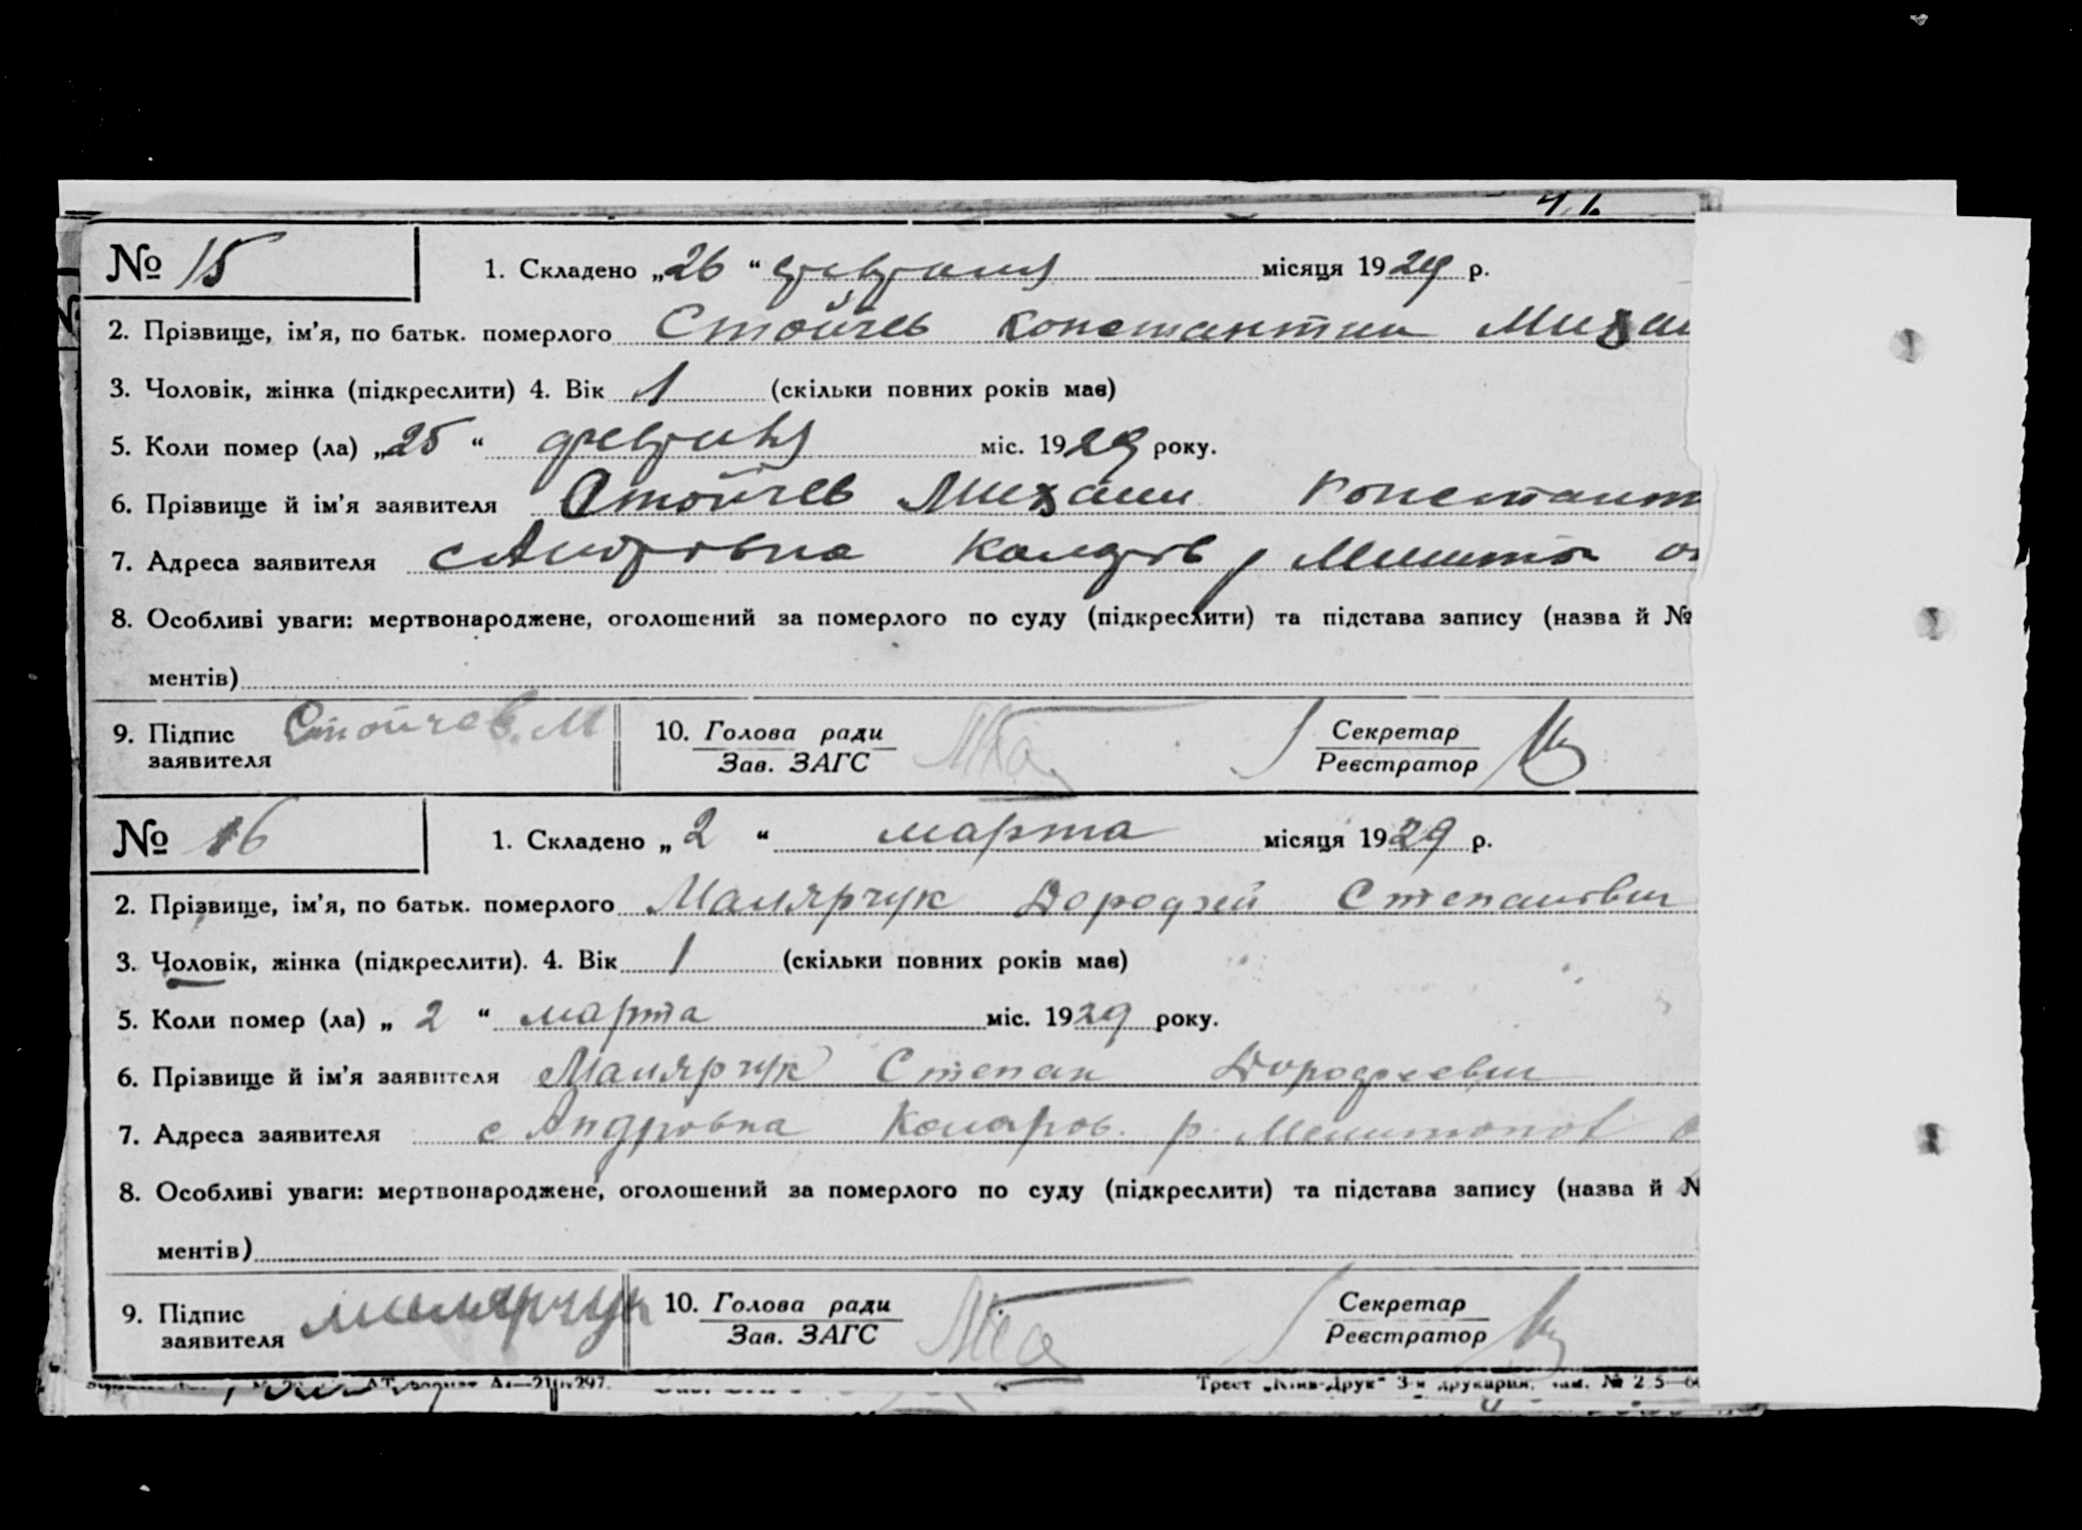 № 15 1. Складено „26“ февраля місяця 1929 р.
2. Прізвище, ім'я, по батьк. померлого Стойчев Константин Михаи
3. Чоловік, жінка (підкреслити) 4. Вік 1 (скільки повних років має)
5. Коли помер (ла) „25“ февраля міс. 1929 року.
6. Прізвище й ім'я заявителя Стойчев Михаил Константи
7. Адреса заявителя с Андровка р Мелитоп
8. Особливі уваги: мертвонароджене, оголошений за померлого по суду (підкреслити) та підстава запису (назва й №
ментів)
9. Підпис заявителя Стойчев. М 10. Голова ради Секретар
Зав. ЗАГС Реєстратор
№ 16 1. Складено „2“ марта місяця 1929 р.
2. Прізвище, ім'я, по батьк. померлого Малярчук Дорофей Степанович
3. Чоловік, жінка (підкреслити). 4. Вік 1 (скільки повних років має)
5. Коли помер (ла) „2“ марта міс. 1929 року.
6. Прізвище й ім'я заявителя Малярчук Степан Дорофеевич
7. Адреса заявителя с Андровка Комаров. р. Мелитопол о
8. Особливі уваги: мертвонароджене, оголошений за померлого по суду (підкреслити) та підстава запису (назва й №
ментів)
9. Підпис заявителя Малярчук 10. Голова ради Секретар
Зав. ЗАГС Реєстратор
Трест „Київ-Друк“ 3-я друкарня,